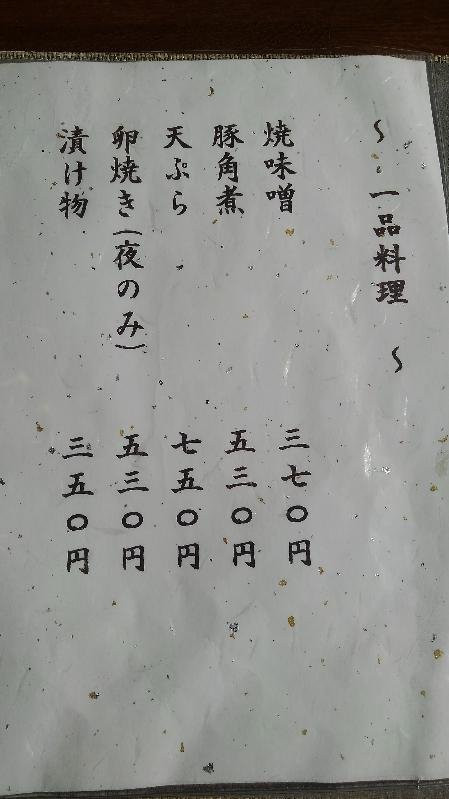 ～一品料理～
焼味噌 三七〇円
豚角煮 五三〇円
天ぷら 七五〇円
卵焼き(夜のみ) 五三〇円
漬け物 三五〇円